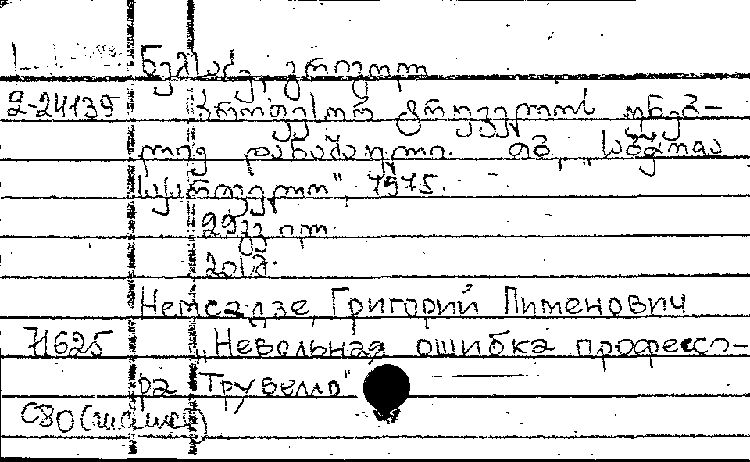 ნემსაძე, გრიგოლ
2-24139 პროფესორ ტრუველოს უნებ-
ლიე დანაშაული. თბ., „საბჭოთა
საქართველო", 1975.
299 გვ.
20 კ.
Немсадзе, Григорий Пименович
71625 „Невольная ошибка профессо-
ра Трувелло"
С80